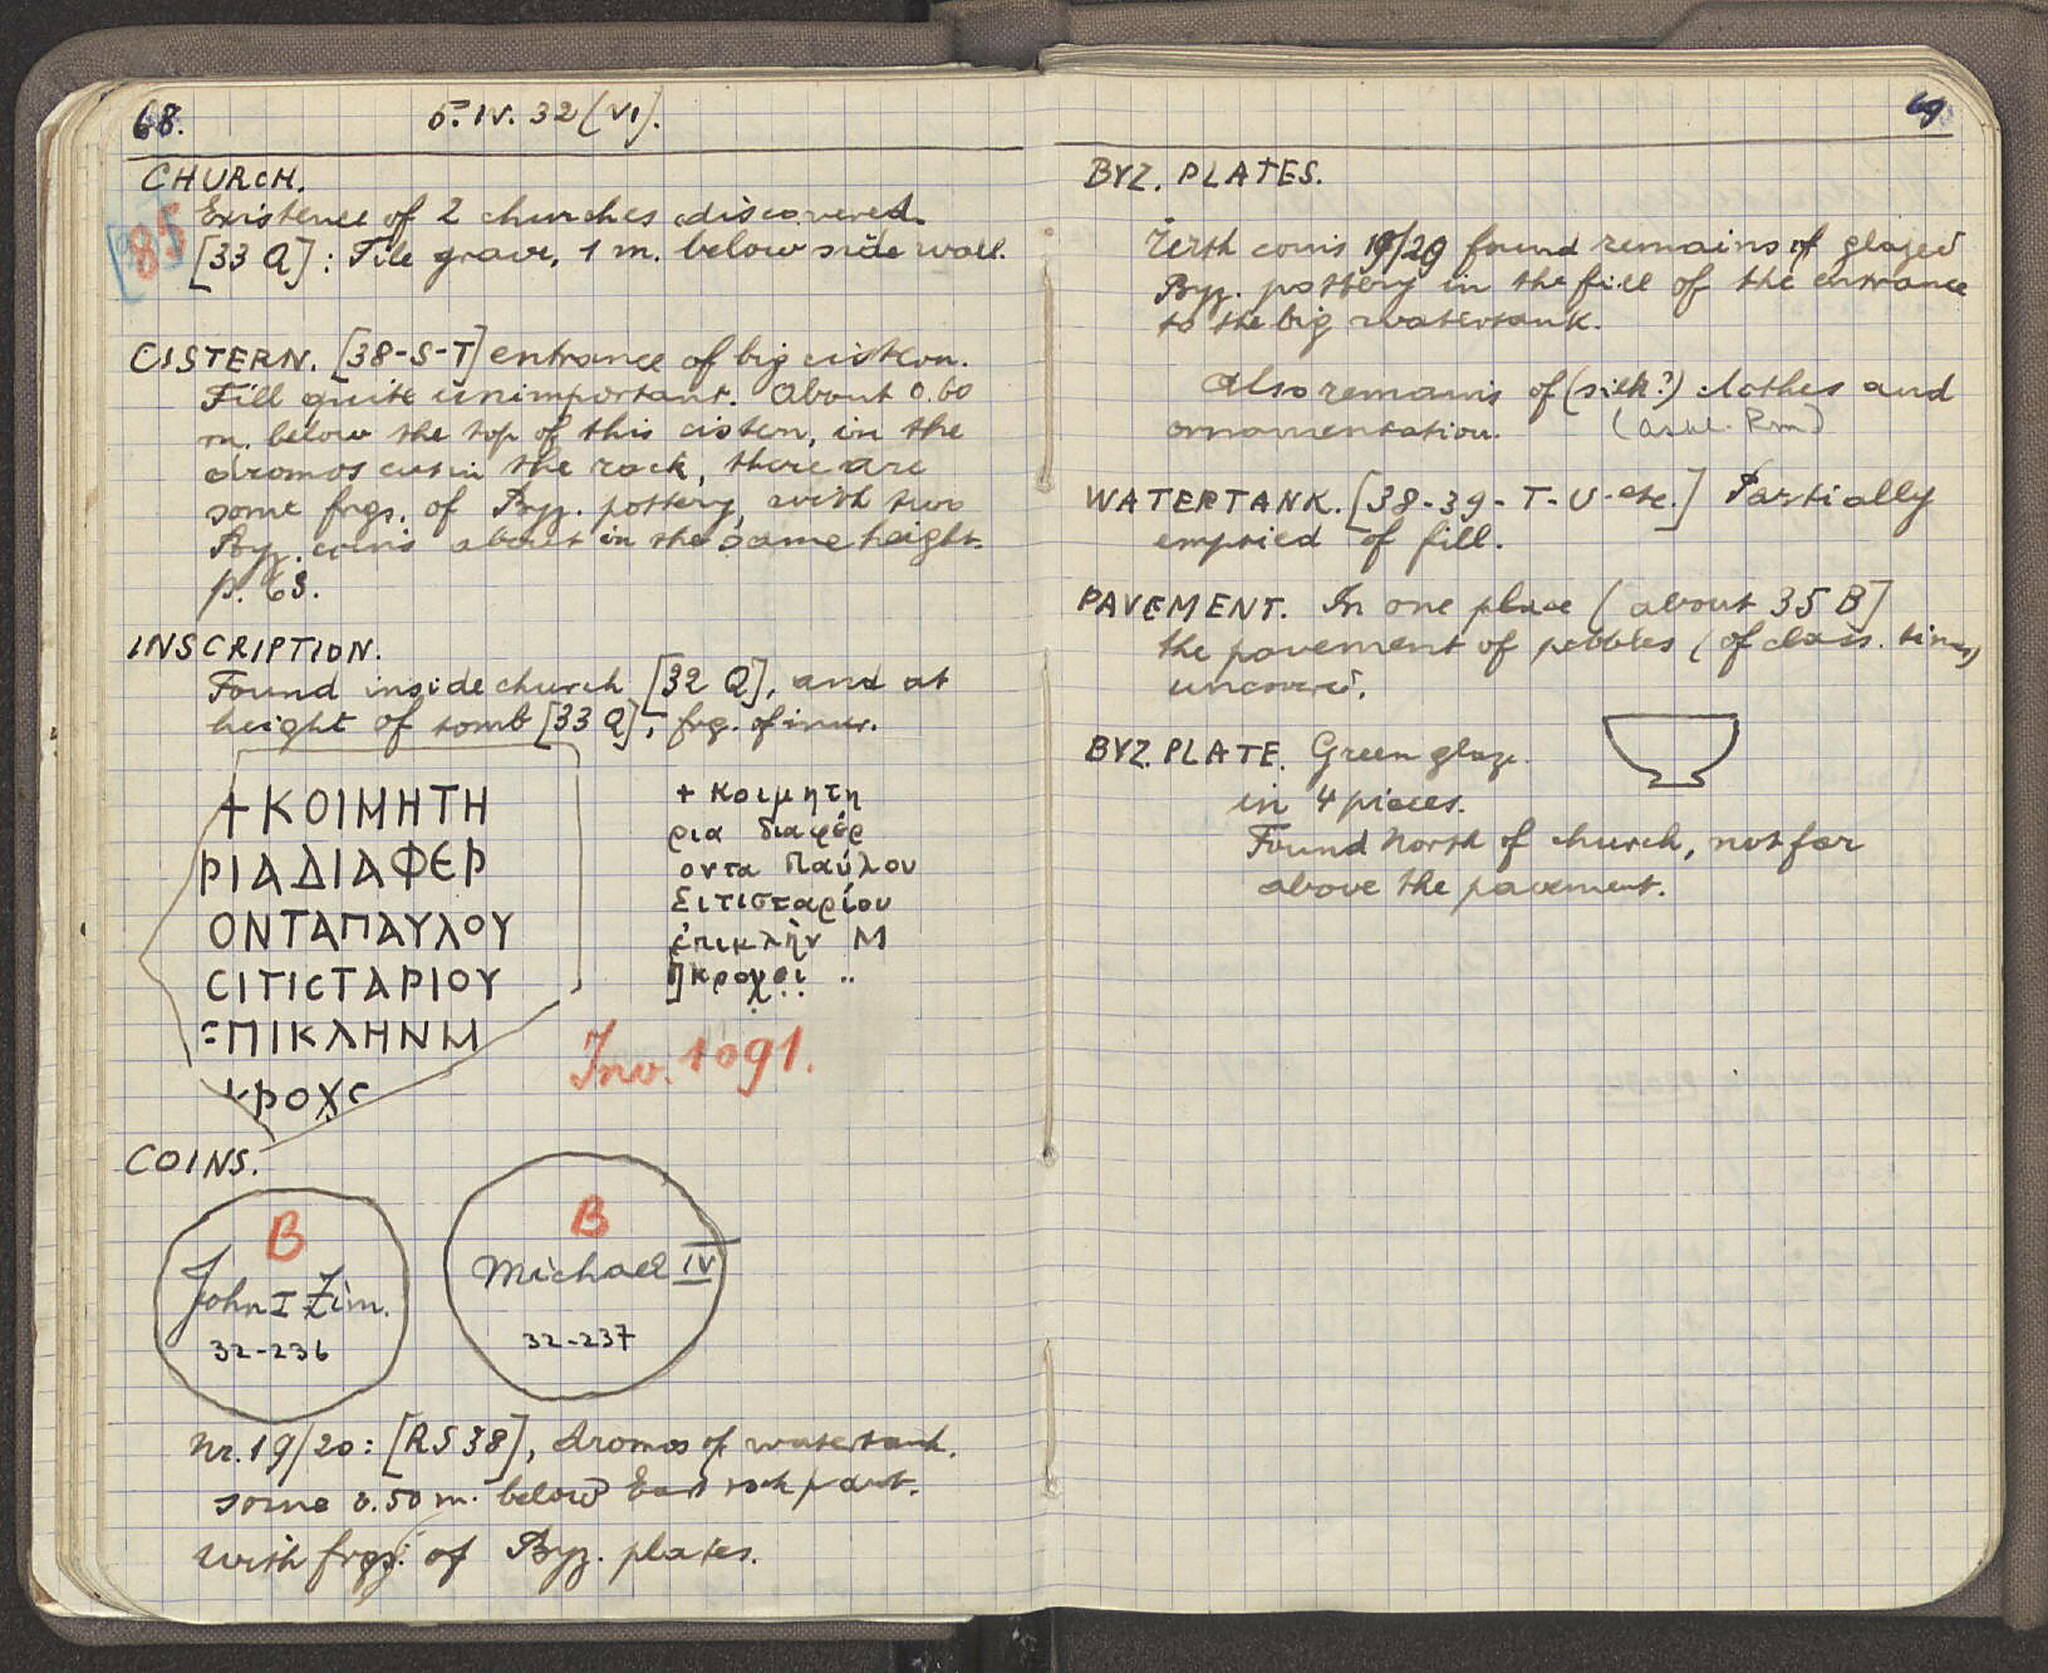 68.
5. IV. 32 (VI).
CHURCH.
Existence of 2 churches discovered.
85
[33 Q]: Tile grave, 1 m. below side wall.
CISTERN. [38-S-T] entrance of big cistern.
Fill quite unimportant. About 0.60
m. below the top of this cistern, in the
dromos cut in the rock, there are
some frgs. of Byz. pottery, with two
Byz. coins about in the same height.
p. 69.
INSCRIPTION.
Found inside church [32 Q], and at
height of tomb [33 Q], frg. of inscr.
+ΚΟΙΜΗΤΗ
ΡΙΑΔΙΑΦΕΡ
ΟΝΤΑΠΑΥΛΟΥ
CΙΤΙCΤΑΡΙΟΥ
ΕΠΙΚΛΗΝΜ
ΚΡΟΧC
+ Κοιμητη
ρια διαφέρ
οντα Παύλου
Σιτισταρίου
ἐπικλὴν Μ
]κροχ
Inv. 1091.
COINS.
B
John I Zim.
32-236
B
Michael IV
32-237
Nr. 19/20: [RS 38], dromos of watertank.
some 0.50 m. below East rock part.
with frgs. of Byz. plates.
69
BYZ. PLATES.
With coins 19/20 found remains of glazed
Byz. pottery in the fill of the entrance
to the big watertank.
Also remains of (silk?) clothes and
ornamentation.
WATERTANK. [38-39-T-U-etc.] Partially
emptied of fill.
PAVEMENT. In one place [about 35 B]
the pavement of pebbles (of class. times)
uncovered.
BYZ. PLATE. Green glaze.
in 4 pieces.
Found North of church, not far
above the pavement.